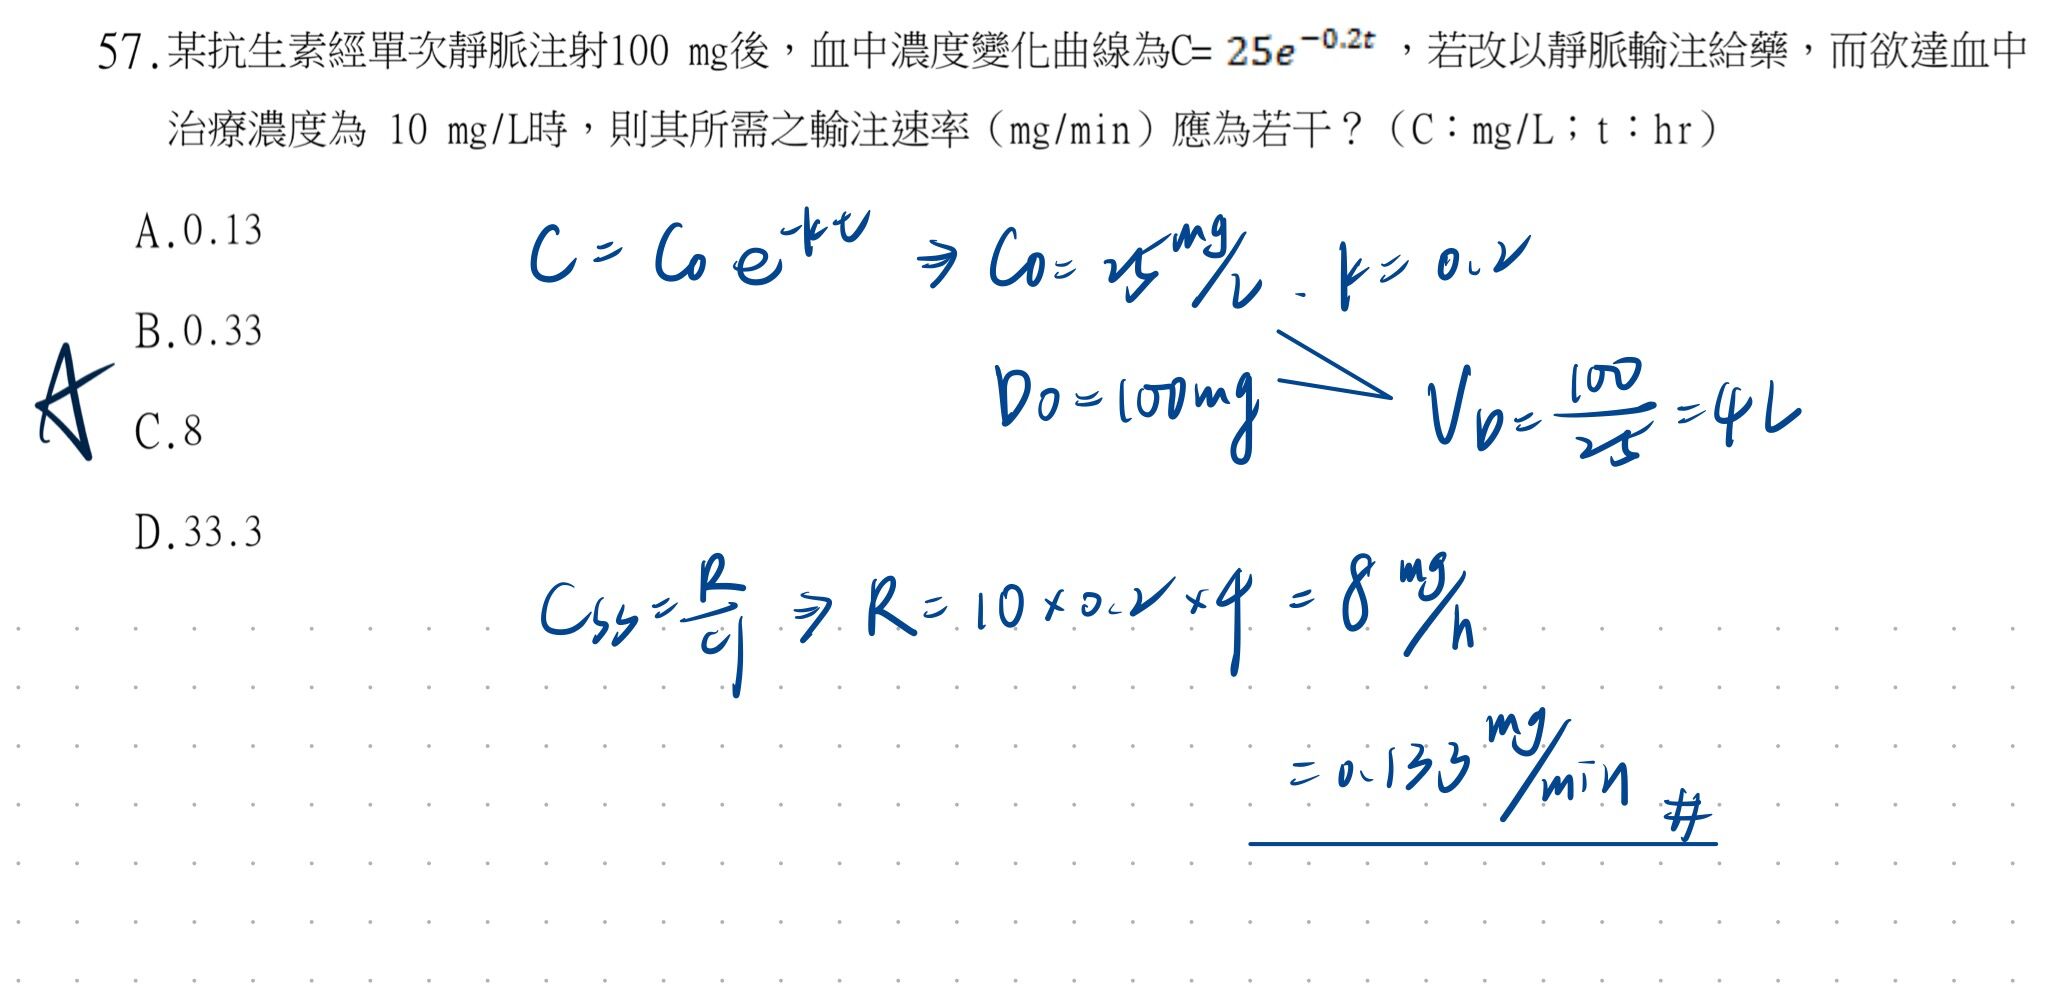 57.某抗生素經單次靜脈注射100 mg後，血中濃度變化曲線為C= 25e^{-0.2t} ，若改以靜脈輸注給藥，而欲達血中
治療濃度為 10 mg/L時，則其所需之輸注速率（mg/min）應為若干？（C：mg/L；t：hr）
A.0.13
B.0.33
C.8
D.33.3
A
C = C₀ e^{-kt} ⇒ C₀ = 25 mg/L . k = 0.2
D₀ = 100mg
V_D = 100/25 = 4L
Css = R/cl ⇒ R = 10 × 0.2 × 4 = 8 mg/h
= 0.133 mg/min #